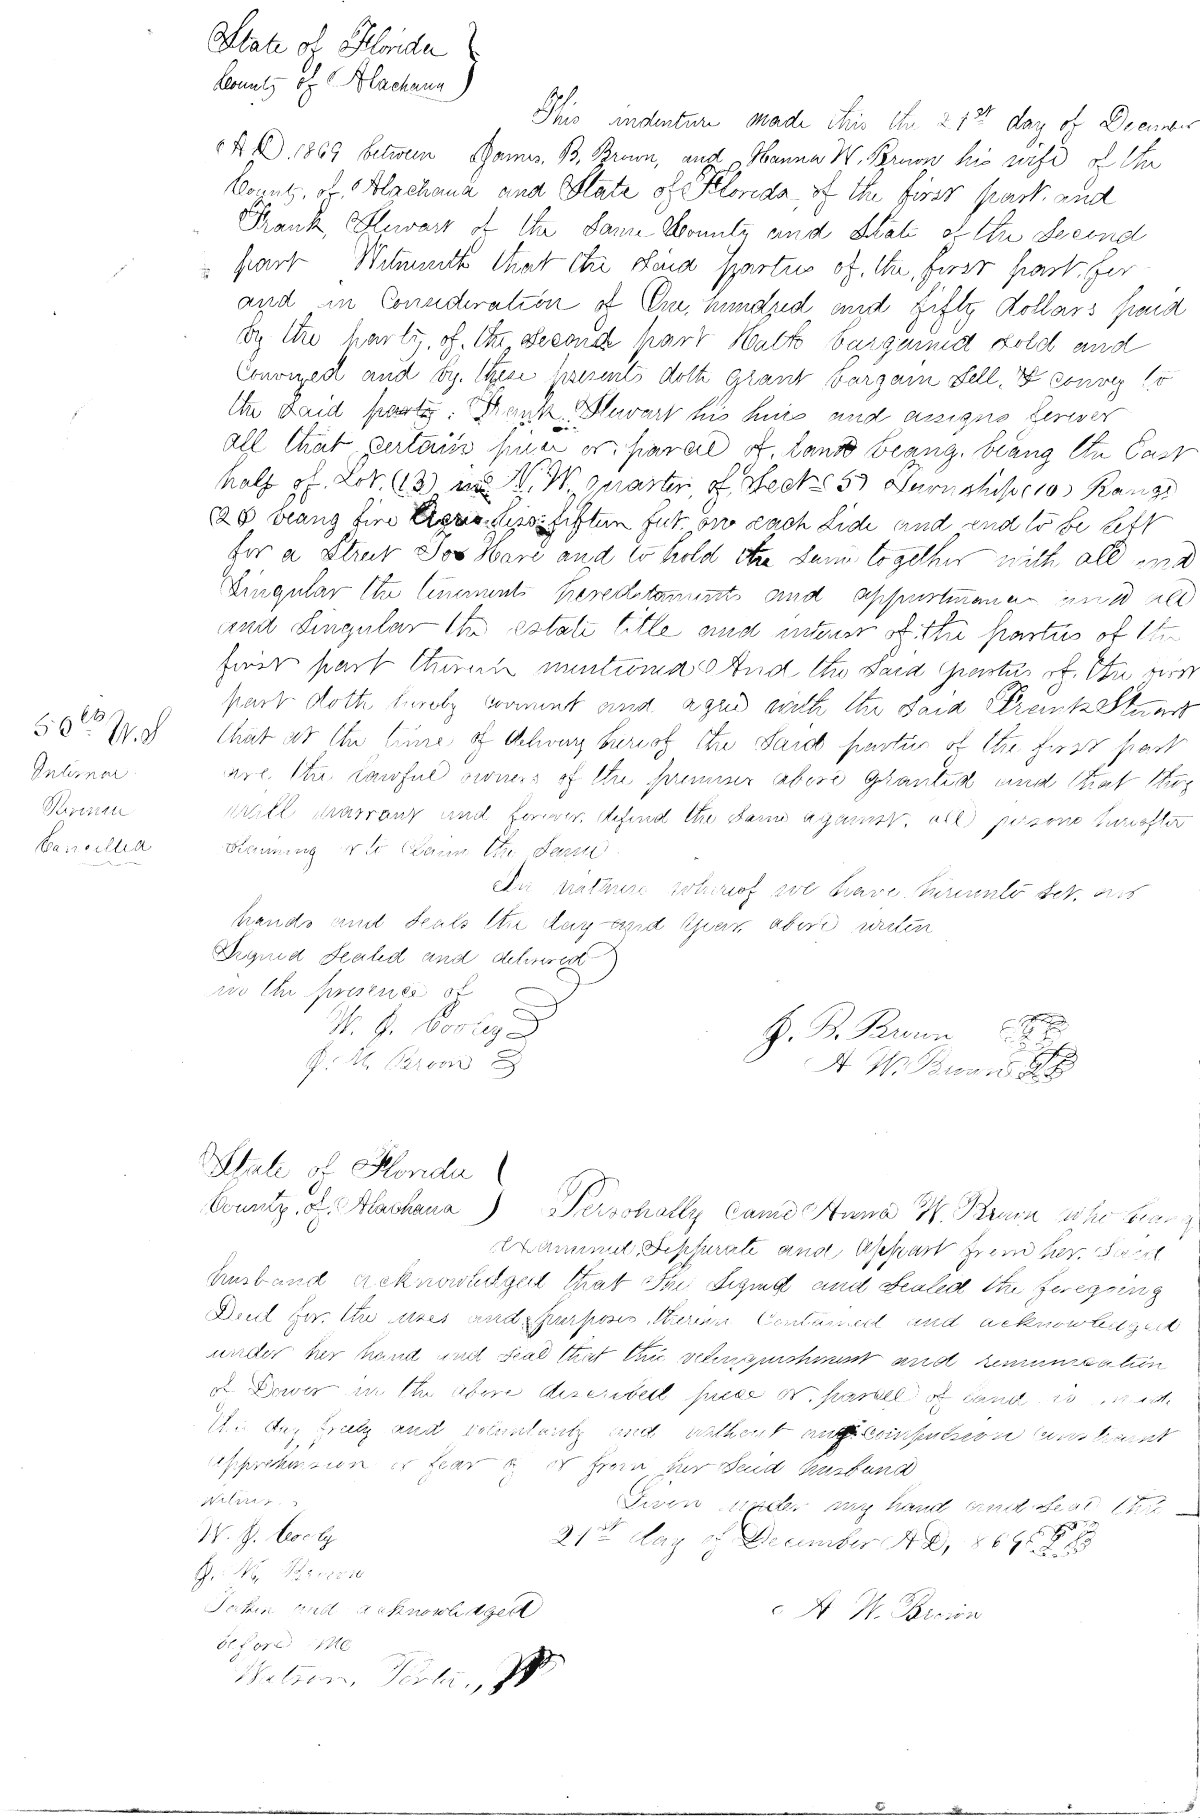 State of Florida
County of Alachua
This indenture made this the 21st day of December
A D. 1869 between James. B. Brown, and Hanna W. Brown his wife of the
County. of. Alachua and State of Florida of the first part. and
Frank, Stewart of the Same County and State of the Second
part Witnesseth that the Said parties of. the, first part. for
and in Consideration of One, hundred and fifty dollars paid
by the party. of. the Second part Hath bargained Sold and
Conveyed and by. these presents doth grant bargain Sell, & convey to
the Said party. Frank Stewart his heirs and assigns forever
all that certain piece or. parcel of. land beang. beang the East
half of. Lot. (13) in N. W. quarter of. Sect (5) Township (10) Range
(20 beang five Acres less fifteen feet. on each Side and end to be left
for a Street To Have and to hold the Same together with all and
Singular the tenements hereditaments and appurtenances and all
and Singular the estate title and interest of. the parties of the
first part therein mentioned And the Said parties of. the first
part doth hereby covenant and agree with the Said Frank Stuart
that at the time of delivery hereof the Said parties of the first part
are, the lawful owners of the premises above granted and that they
will warrant and forever. defend the Same against. all persons hereafter
claiming or to Claim the Same
50 cts
Internal
Revenue
Cancelled
In witness whereof we have hereunto Set. our
hands and Seals the day and year above writen
Signed Sealed and delivered
in the presence of
W. J. Cooley
J. M. Brown
J. B. Brown
A W. Brown
State of Florida
County. of. Alachua
Personally came Anna W. Brown who being
examined Sepperate and appart from her. Said
husband acknowledged that She Signed and Sealed the foregoing
Deed for. the uses and purposes therein Contained and acknowledged
under her hand and Seal that this relinquishment and renunciation
of Dower in the above described piece or. parcel of land is made
this day freely and voluntarly and without any compulsion constraint
apprehension or fear of or from her Said husband
Given under my hand and Seal this
21st day of December A D, 1869
Witness
W. J. Cooly
J. M. Brown
Taken and acknowledged
before me
A W. Brown
Watson, Porter,